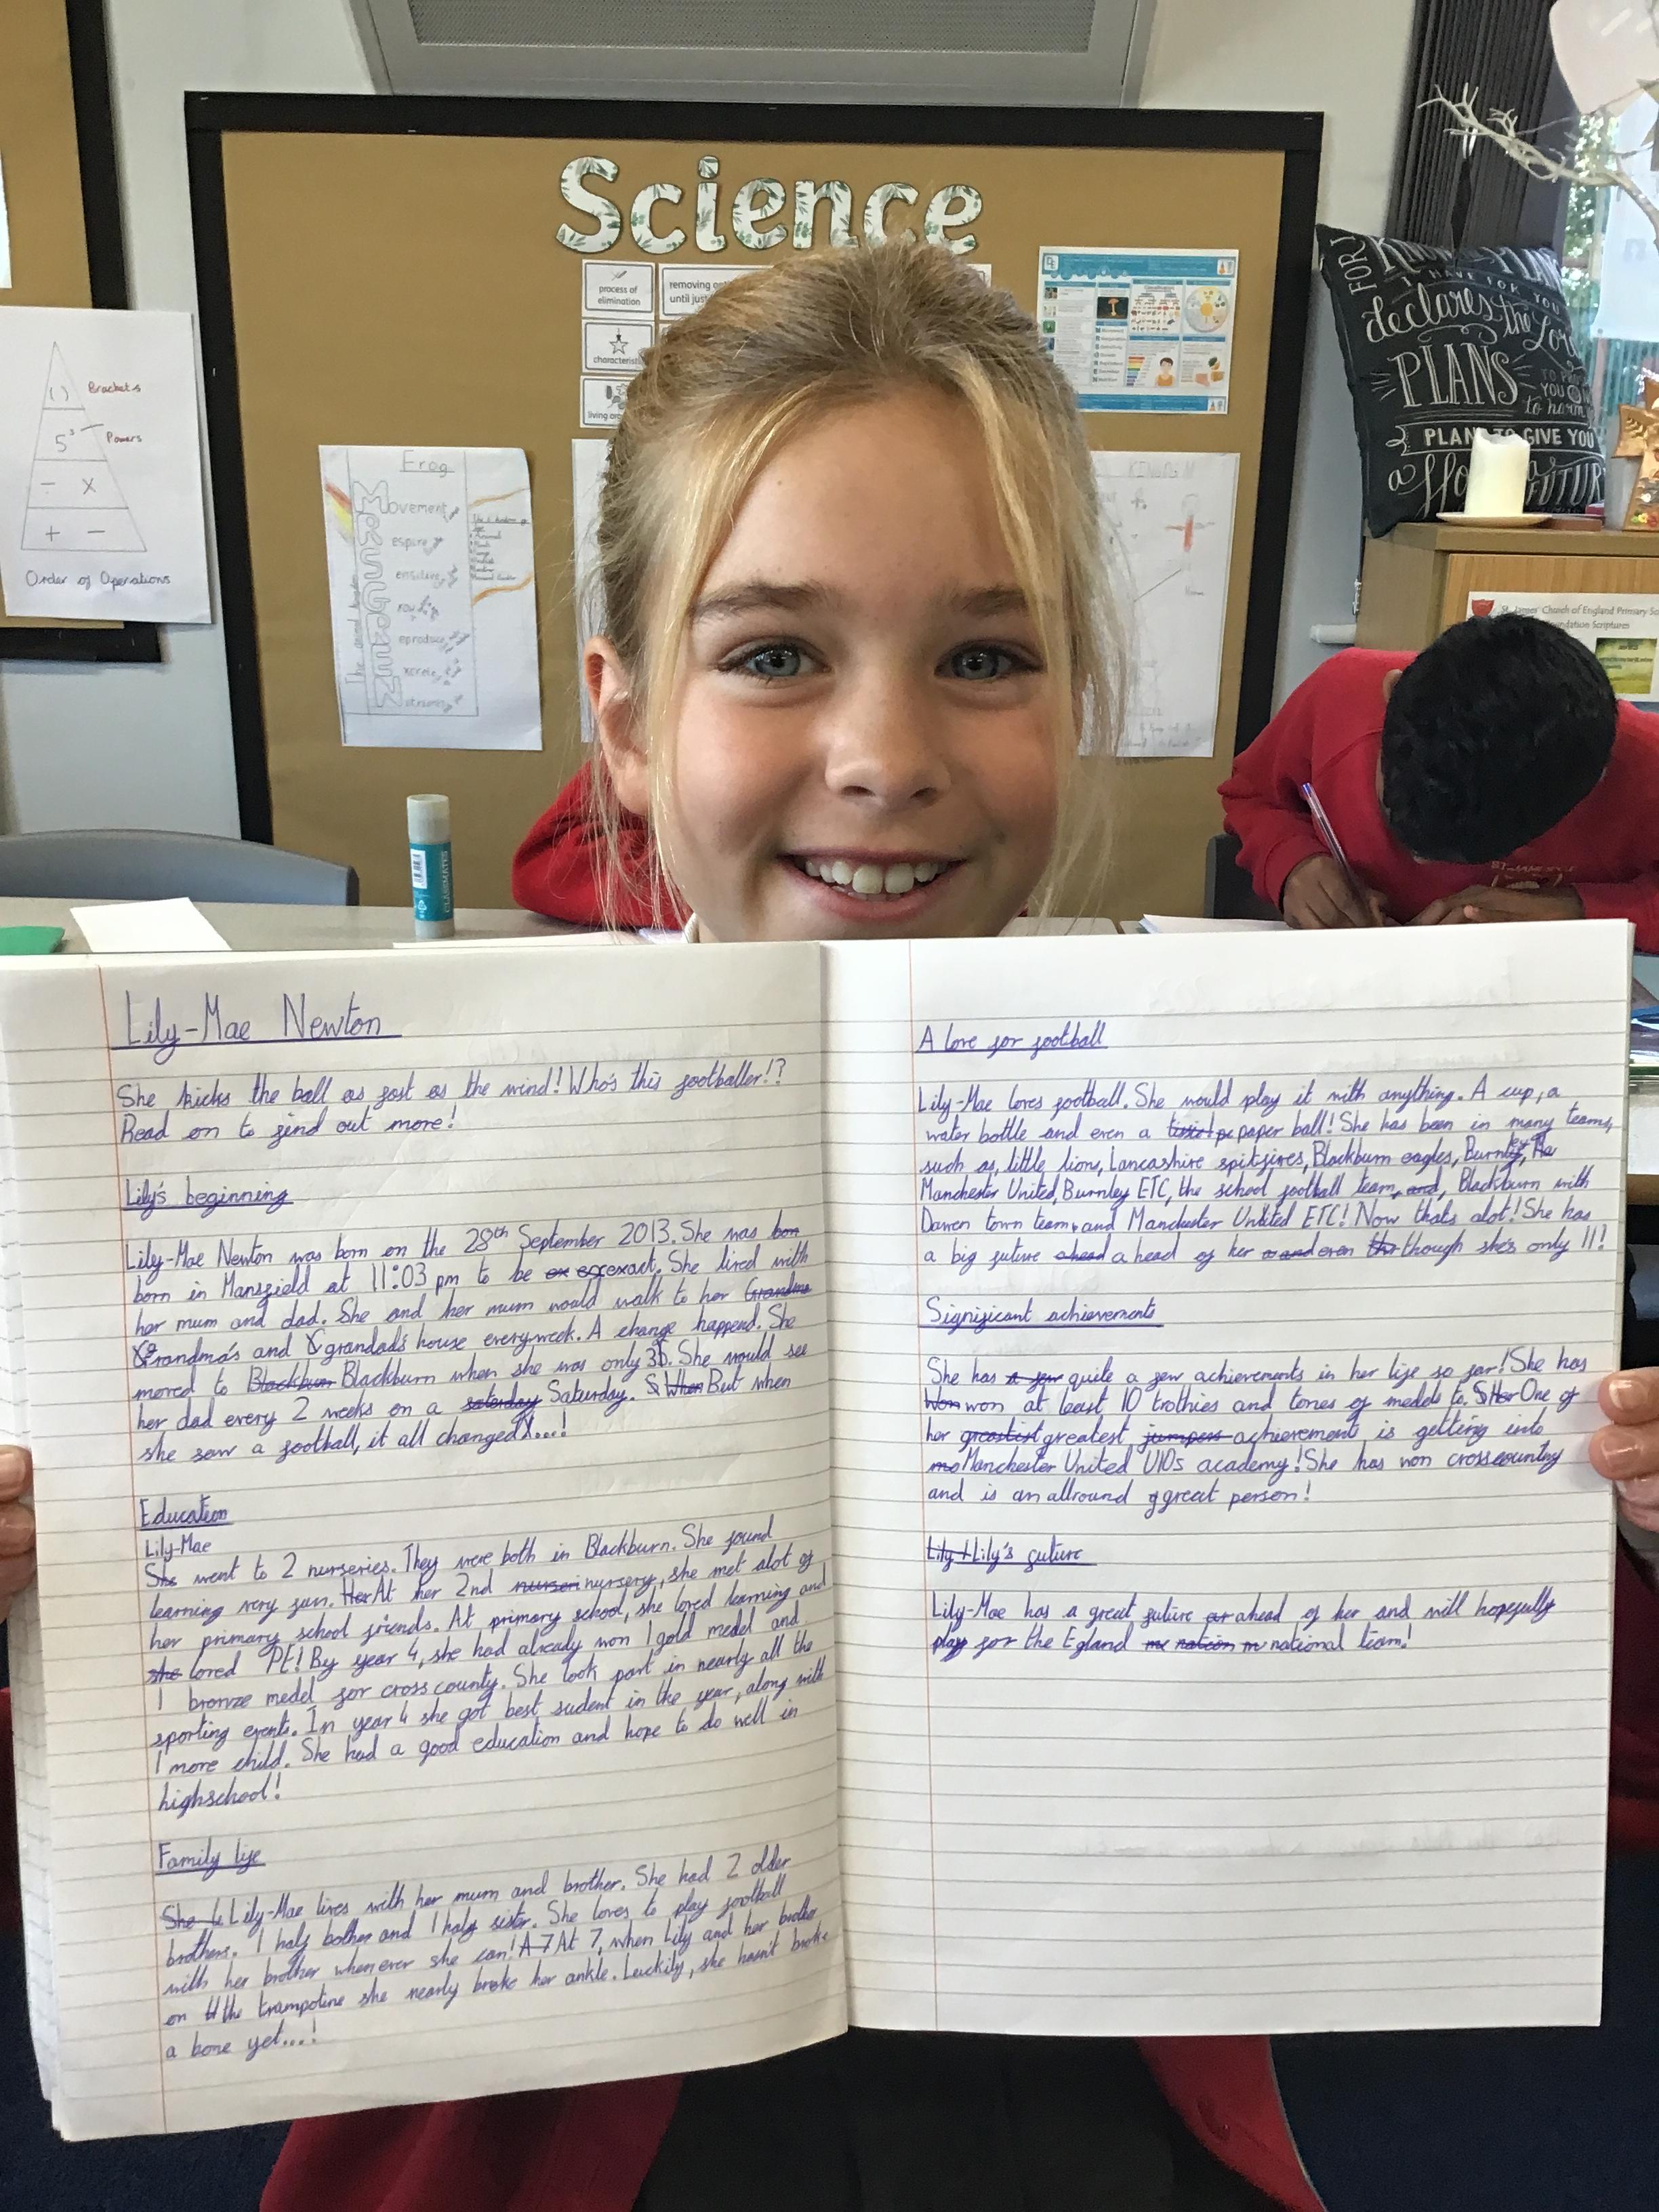 Science
process of
elimination
removing
until just
characteristic
living
( ) Brackets
5³ Powers
÷ ×
+ −
Order of Operations
Frog
Movement
KNOW THE PLANS
I HAVE FOR YOU
declares the Lord
PLANS
TO PROSPER
YOU
to harm
PLANS TO GIVE YOU
a
FUTURE
St. James' Church of England Primary
Foundation Scriptures
CLASSMATES
Lily-Mae Newton
She kicks the ball as fast as the wind! Who's this footballer!?
Read on to find out more!
Lily's beginning
Lily-Mae Newton was born on the 28th September 2013. She was born
born in Mansfield at 11:03 pm to be ex exexact. She lived with
her mum and dad. She and her mum would walk to her Grandma
Grandma's and grandad's house everyweek. A change happend. She
moved to Blackburn Blackburn when she was only 3. She would see
her dad every 2 weeks on a saterday Saturday. S When But when
she saw a football, it all changed...!
Education
Lily-Mae
She went to 2 nurseries. They were both in Blackburn. She found
learning very fun. Her At her 2nd nurseri nursery, she met alot of
her primary school friends. At primary school, she loved learning and
she loved PE! By year 4, she had already won 1 gold medel and
1 bronze medel for cross county. She took part in nearly all the
sporting events. In year 4 she got best sudent in the year, along with
1 more child. She had a good education and hope to do well in
highschool!
Family life
She L Lily-Mae lives with her mum and brother. She had 2 older
brothers. 1 half bother and 1 half sister. She loves to play football
with her brother whenever she can! A 7 At 7, when Lily and her brother
on tt the trampoline she nearly broke her ankle. Luckily, she hasn't broke
a bone yet...!
A love for football
Lily-Mae loves football. She would play it with anything. A cup, a
water bottle and even a paper ball! She has been in many teams,
such as, little lions, Lancashire spitfires, Blackburn eagles, Burnley,
Manchester United, Burnley ETC, the school football team, and, Blackburn with
Darwen town team, and Manchester United ETC! Now thats alot! She has
a big future ahead a head of her a and even tho though she's only 11!
Significant achievements
She has a few quite a few achievements in her life so far! She has
won won at least 10 trothies and tones of medels to. S Her One of
her greatist greatest jumpers achievements is getting into
ma Manchester United U10s academy! She has won crosscountry
and is an allround g great person!
Lily + Lily's future
Lily-Mae has a great future ar ahead of her and will hopefully
play for the Egland na nation n national team!